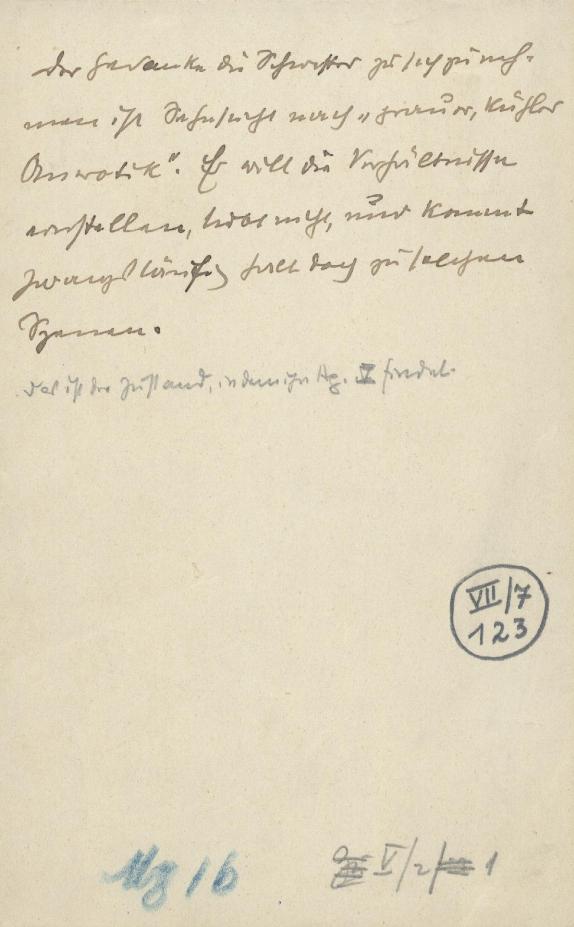 Der Gedanke die Schwester zu sich zu neh-
men ist Sehnsucht nach „grauer, kühler
Er will die Verhältnisse
nicht, und kommt
zwangsläufig halt doch zu solchen
Szenen.
Das ist der Zustand, in dem ihn Ag. V findet.
VII/7
123
Mg 16
V/2/ 1